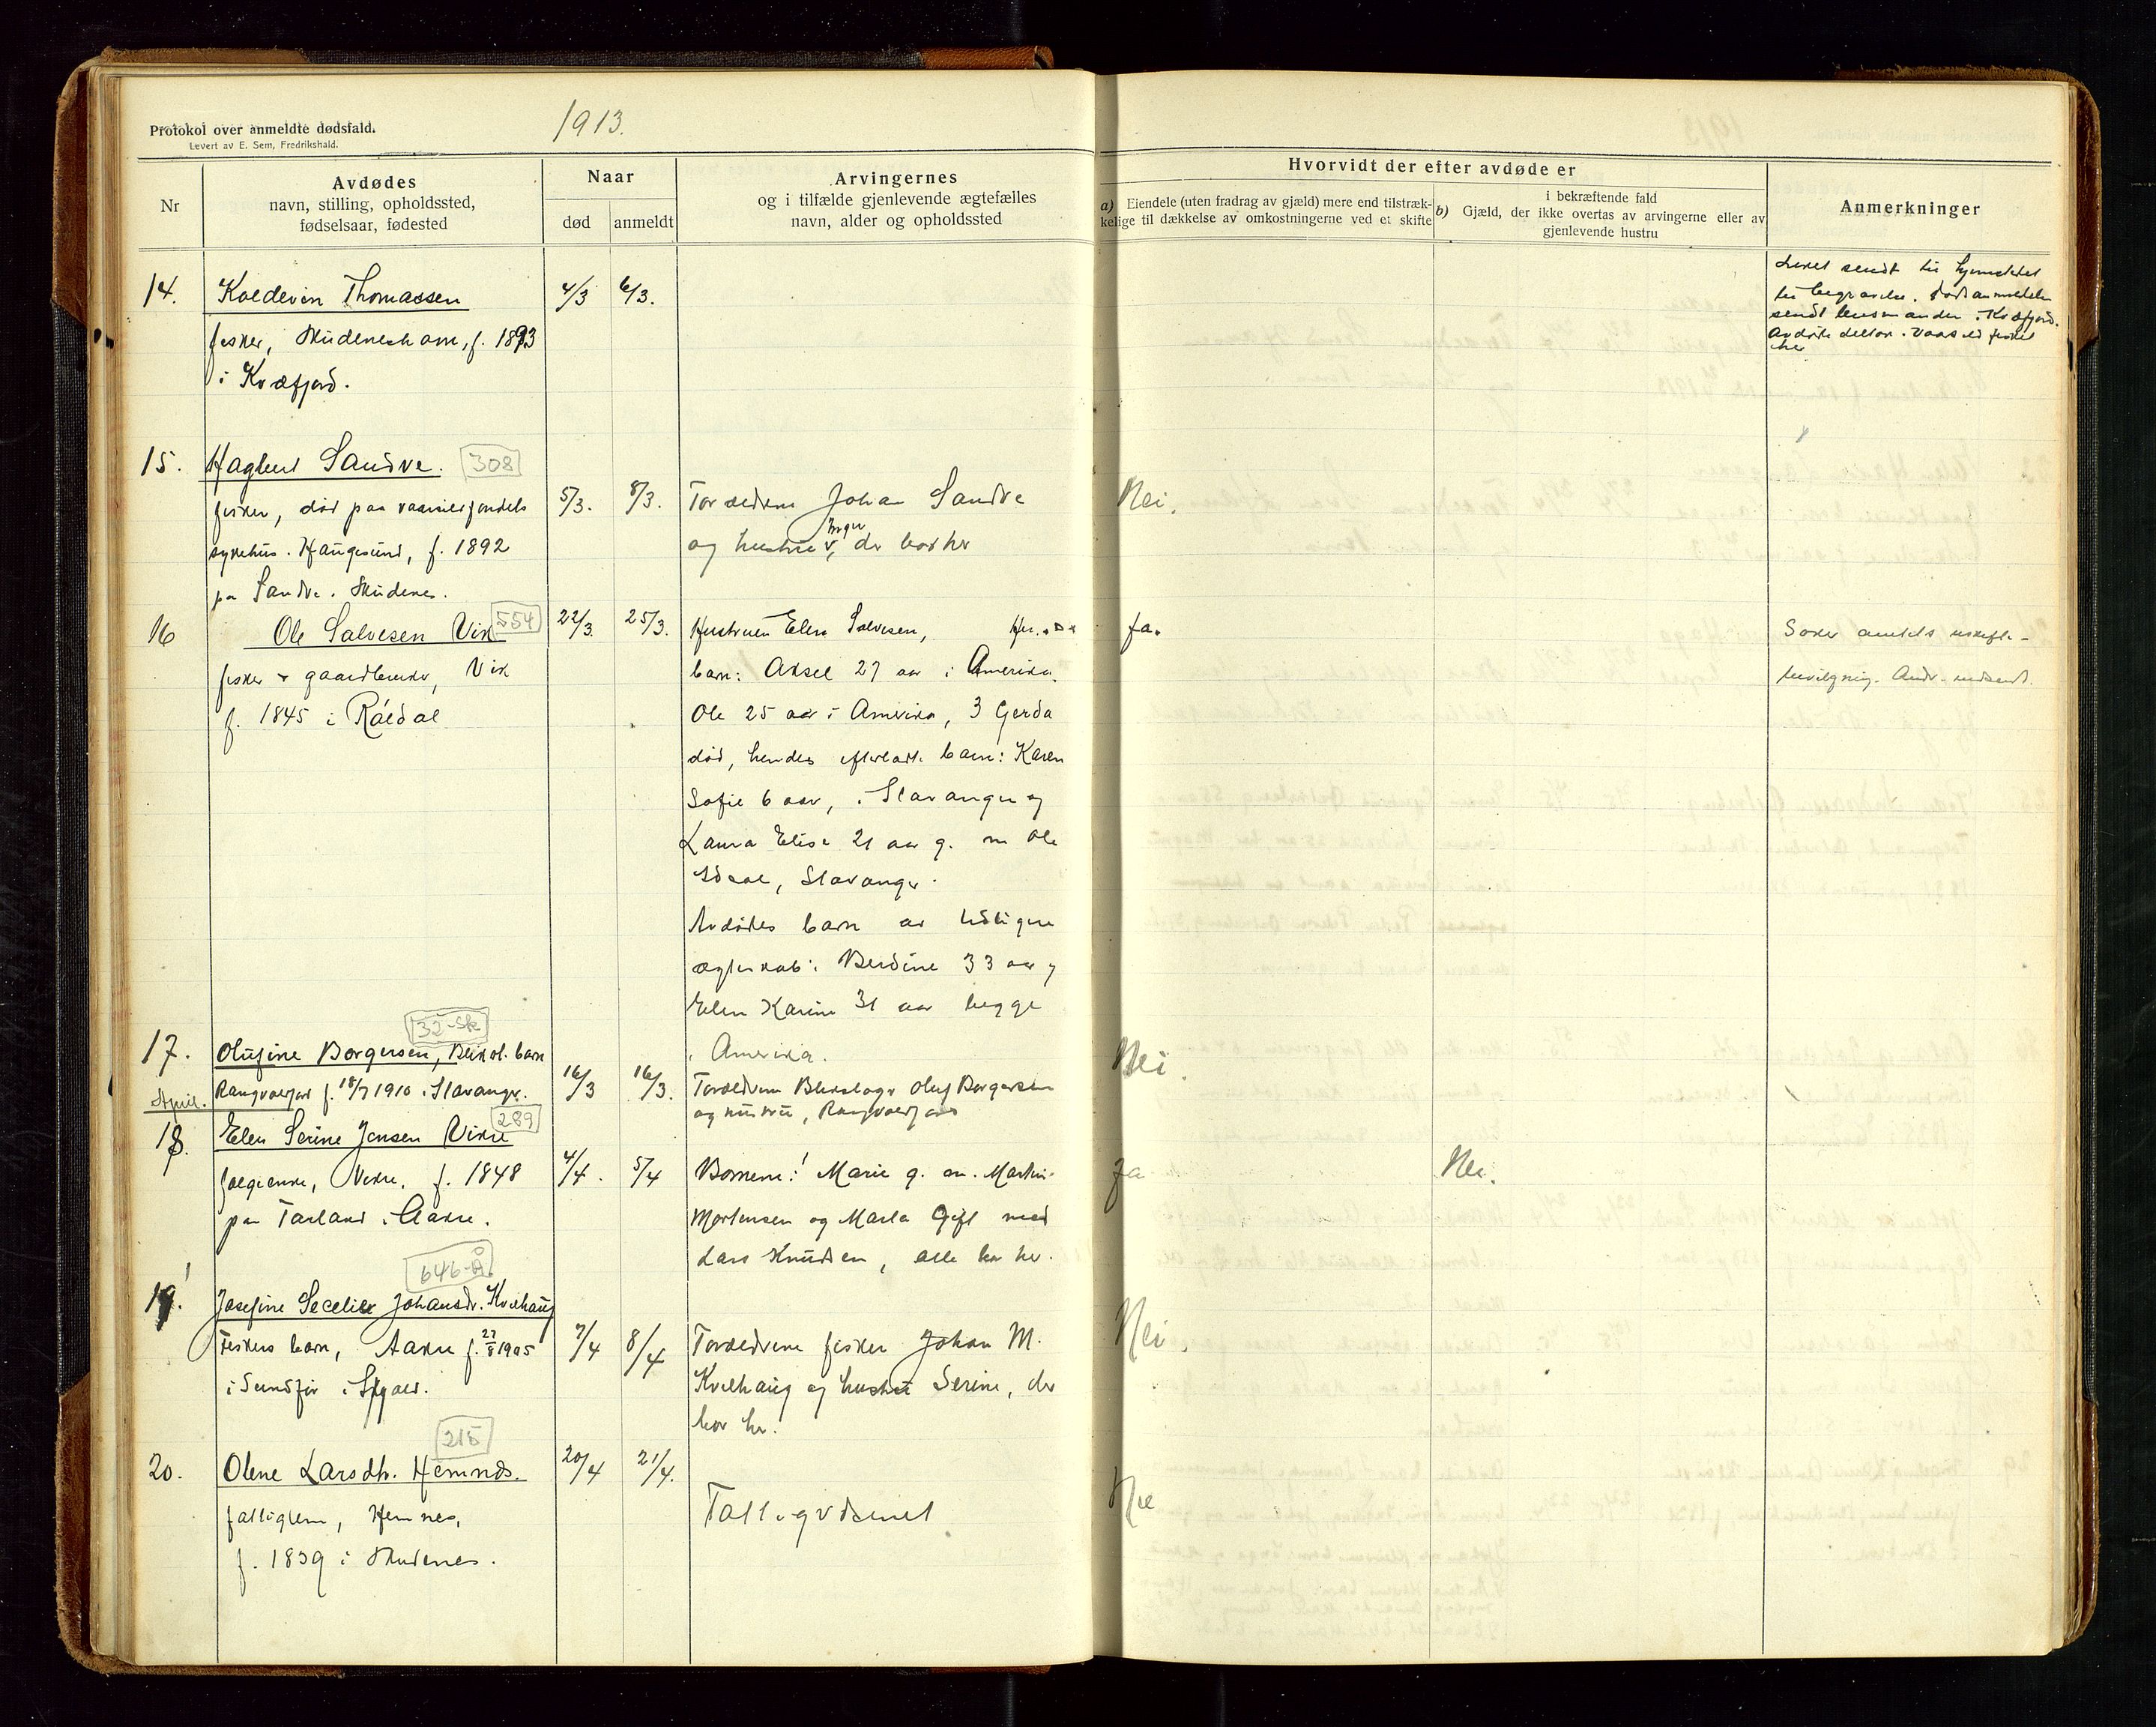 Protokol over anmeldte dødsfald.
Levert av E. Sem, Fredrikshald.
1913.
Nr
Avdødes
navn, stilling, opholdssted,
fødselsaar, fødested
Naar
død
anmeldt
Arvingernes
og i tilfælde gjenlevende ægtefælles
navn, alder og opholdssted
Hvorvidt der efter avdøde er
a) Eiendele (uten fradrag av gjæld) mere end tilstræk-
kelige til dækkelse av omkostningerne ved et skifte
b) i bekræftende fald
Gjæld, der ikke overtas av arvingerne eller av
gjenlevende hustru
Anmerkninger
14.
Koldevin Thomassen
fisker, Skudeneshavn, f. 1893
i Kvæfjord.
4/3
6/3.
Liket sendt til hjemstedet
til begravelse. Dødsanmeldelse
sendt lensmanden i Kvæfjord.
Avdøde deltok i vaarsildfisket
her
15.
Hagbert Sandve.
308
fisker, død paa vaarsildfondets
sykehus i Haugesund, f. 1892
på Sandve i Skudenes.
5/3.
8/3.
Forældrene Johan Sandve
og hustru Inger, der bor her
Nei.
16
Ole Salvesen Vik
554
fisker & gaardbruker, Vik
f. 1845 i Røldal
22/3.
25/3.
Hustruen Elen Salvesen, Her.
barn: Aksel 27 aar i Amerika.
Ole 25 aar i Amerika, 3 Gerda
død, hendes efterladte barn: Karen
Sofie 6 aar, i Stavanger og
Laura Elise 21 aar g. m Ole
Stavanger.
Avdødes barn av tidligere
ægteskab: Berdine 33 aar og
Elen Karine 31 aar begge
i Amerika.
Ja.
Søker amtets uskifte-
bevilgning. Andr. indsendt.
17.
32-Sk
Olufine Borgersen, Bliksl. barn
Rangvaldjord f. 18/7 1910 i Stavanger.
16/3
16/3.
Forældrene Blikslager Oluf Borgersen
og hustru,
Nei.
April.
18.
Elen Serine Jensen Vikre
289
folgeenke, Vikre, f. 1848
paa Færland i Aakre.
4/4.
5/4
Børnene: Marie g. m. Martin
Mortensen og Marta Gift med
Lars Knudsen, alle bor her.
Ja
Nei.
19.
646-Å
Josefine Secelie Johansdr. Kvilhaug
Fiskers barn, Aakre f. 27/8 1905
i Sundfør i Sjgard.
7/4
8/4
Forældrene fisker Johan M.
Kvilhaug og hustru Serine, der
bor her.
Nei.
20.
215
Olene Larsdtr. Hemnes.
fattiglem, Hemnes,
f. 1839 i Skudenes.
20/4
21/4.
Fattigvæsenet
Nei